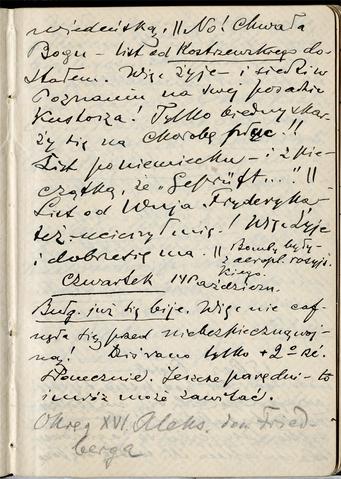 wiedeńską, || No! Chwała
Bogu – list od Kostrzewskiego do-
stałem. Więc żyje – i siedzi w
Poznaniu na swej posadzie
Kustosza! Tylko biedny skar-
ży się na chorobę płuc.!!
List po niemiecku – i z pie-
czątką, że „Geprüft...." ||
List od Wuja Fryderyka-
też ucieszył mię! Więc żyje
i dobrze się ma. || Bomby były
z aeropl. rosyj-
skiego.
Czwartek 14 Październ.
Bułg. już się bije. Więc nie cof-
nęła się przed niebezpieczną woj-
ną! Dziś rano tylko + 2° ść.
Słonecznie. Jeszcze parę dni – to
i mróz może zawitać.
Okręg XVI. Aleks. dom Fried-
berga